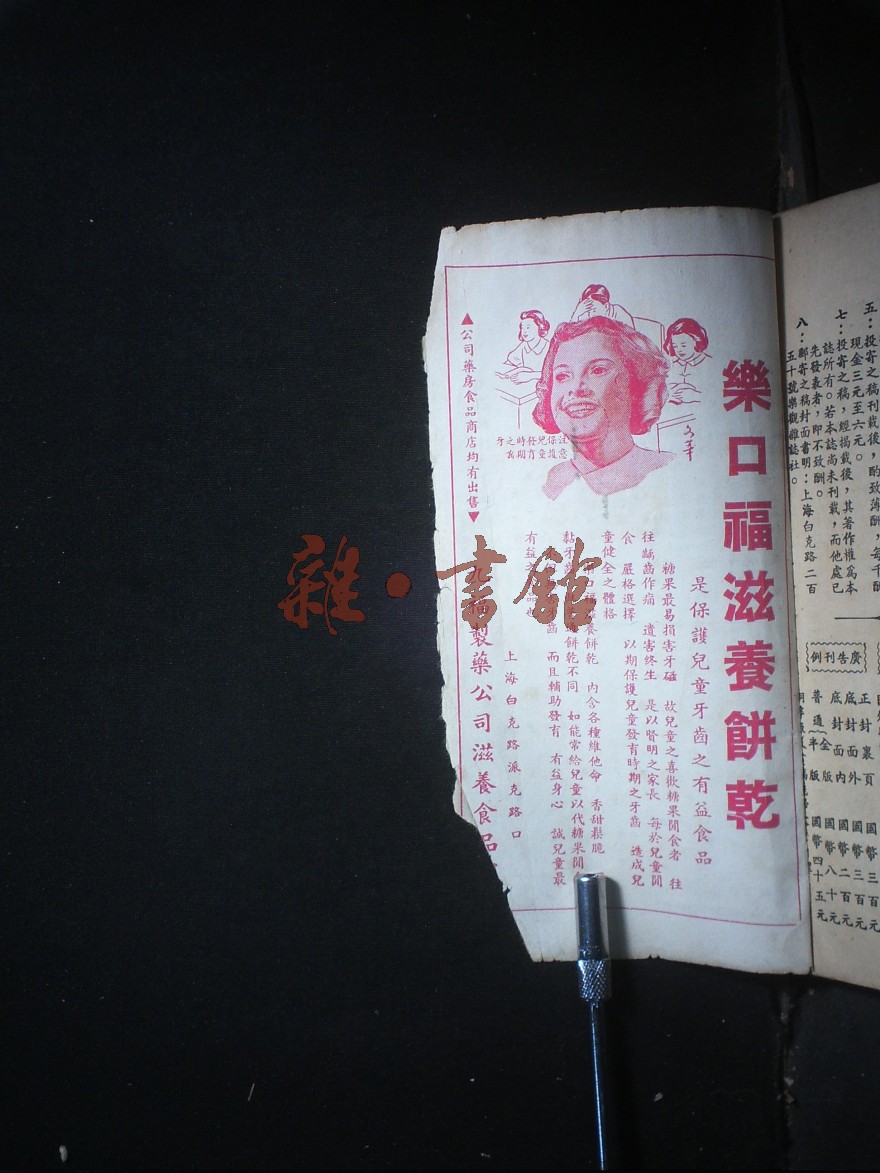 樂口福滋養餅乾
是保護兒童牙齒之有益食品
糖果最易損害牙磁 故兒童之喜歡糖果閒食者 往
往齲齒作痛 遺害終生 是以賢明之家長 每於兒童閒
食 嚴格選擇 以期保護兒童發育時期之牙齒 造成兒
童健全之體格
口福 養餅乾 內含各種維他命 香甜鬆脆
黏牙 餅乾不同 如能常給兒童以代糖果閒
齒 而且輔助發育 有益身心 誠兒童最
有益
注意
保護
兒童
發育
時期
之
牙齒
上海白克路派克路口
九福製藥公司滋養食品
▲公司藥房食品商店均有出售▼
雜·書館
五:投寄之稿刊載後,酌致薄酬,每千
現金三元至六元。
七:投寄之稿,經揭載後,其著作權為本
誌所有。若本誌尚未刊載,而他處已
先發表者,即不致酬。
八:郵寄之稿封面書明:上海白克路二百
五十號樂觀雜誌社。
廣告刊例
正封裏頁 國幣三百元
底封面外 國幣三百元
底封面內 國幣二百元
普通 全版 國幣八十元
半版 國幣四十五元